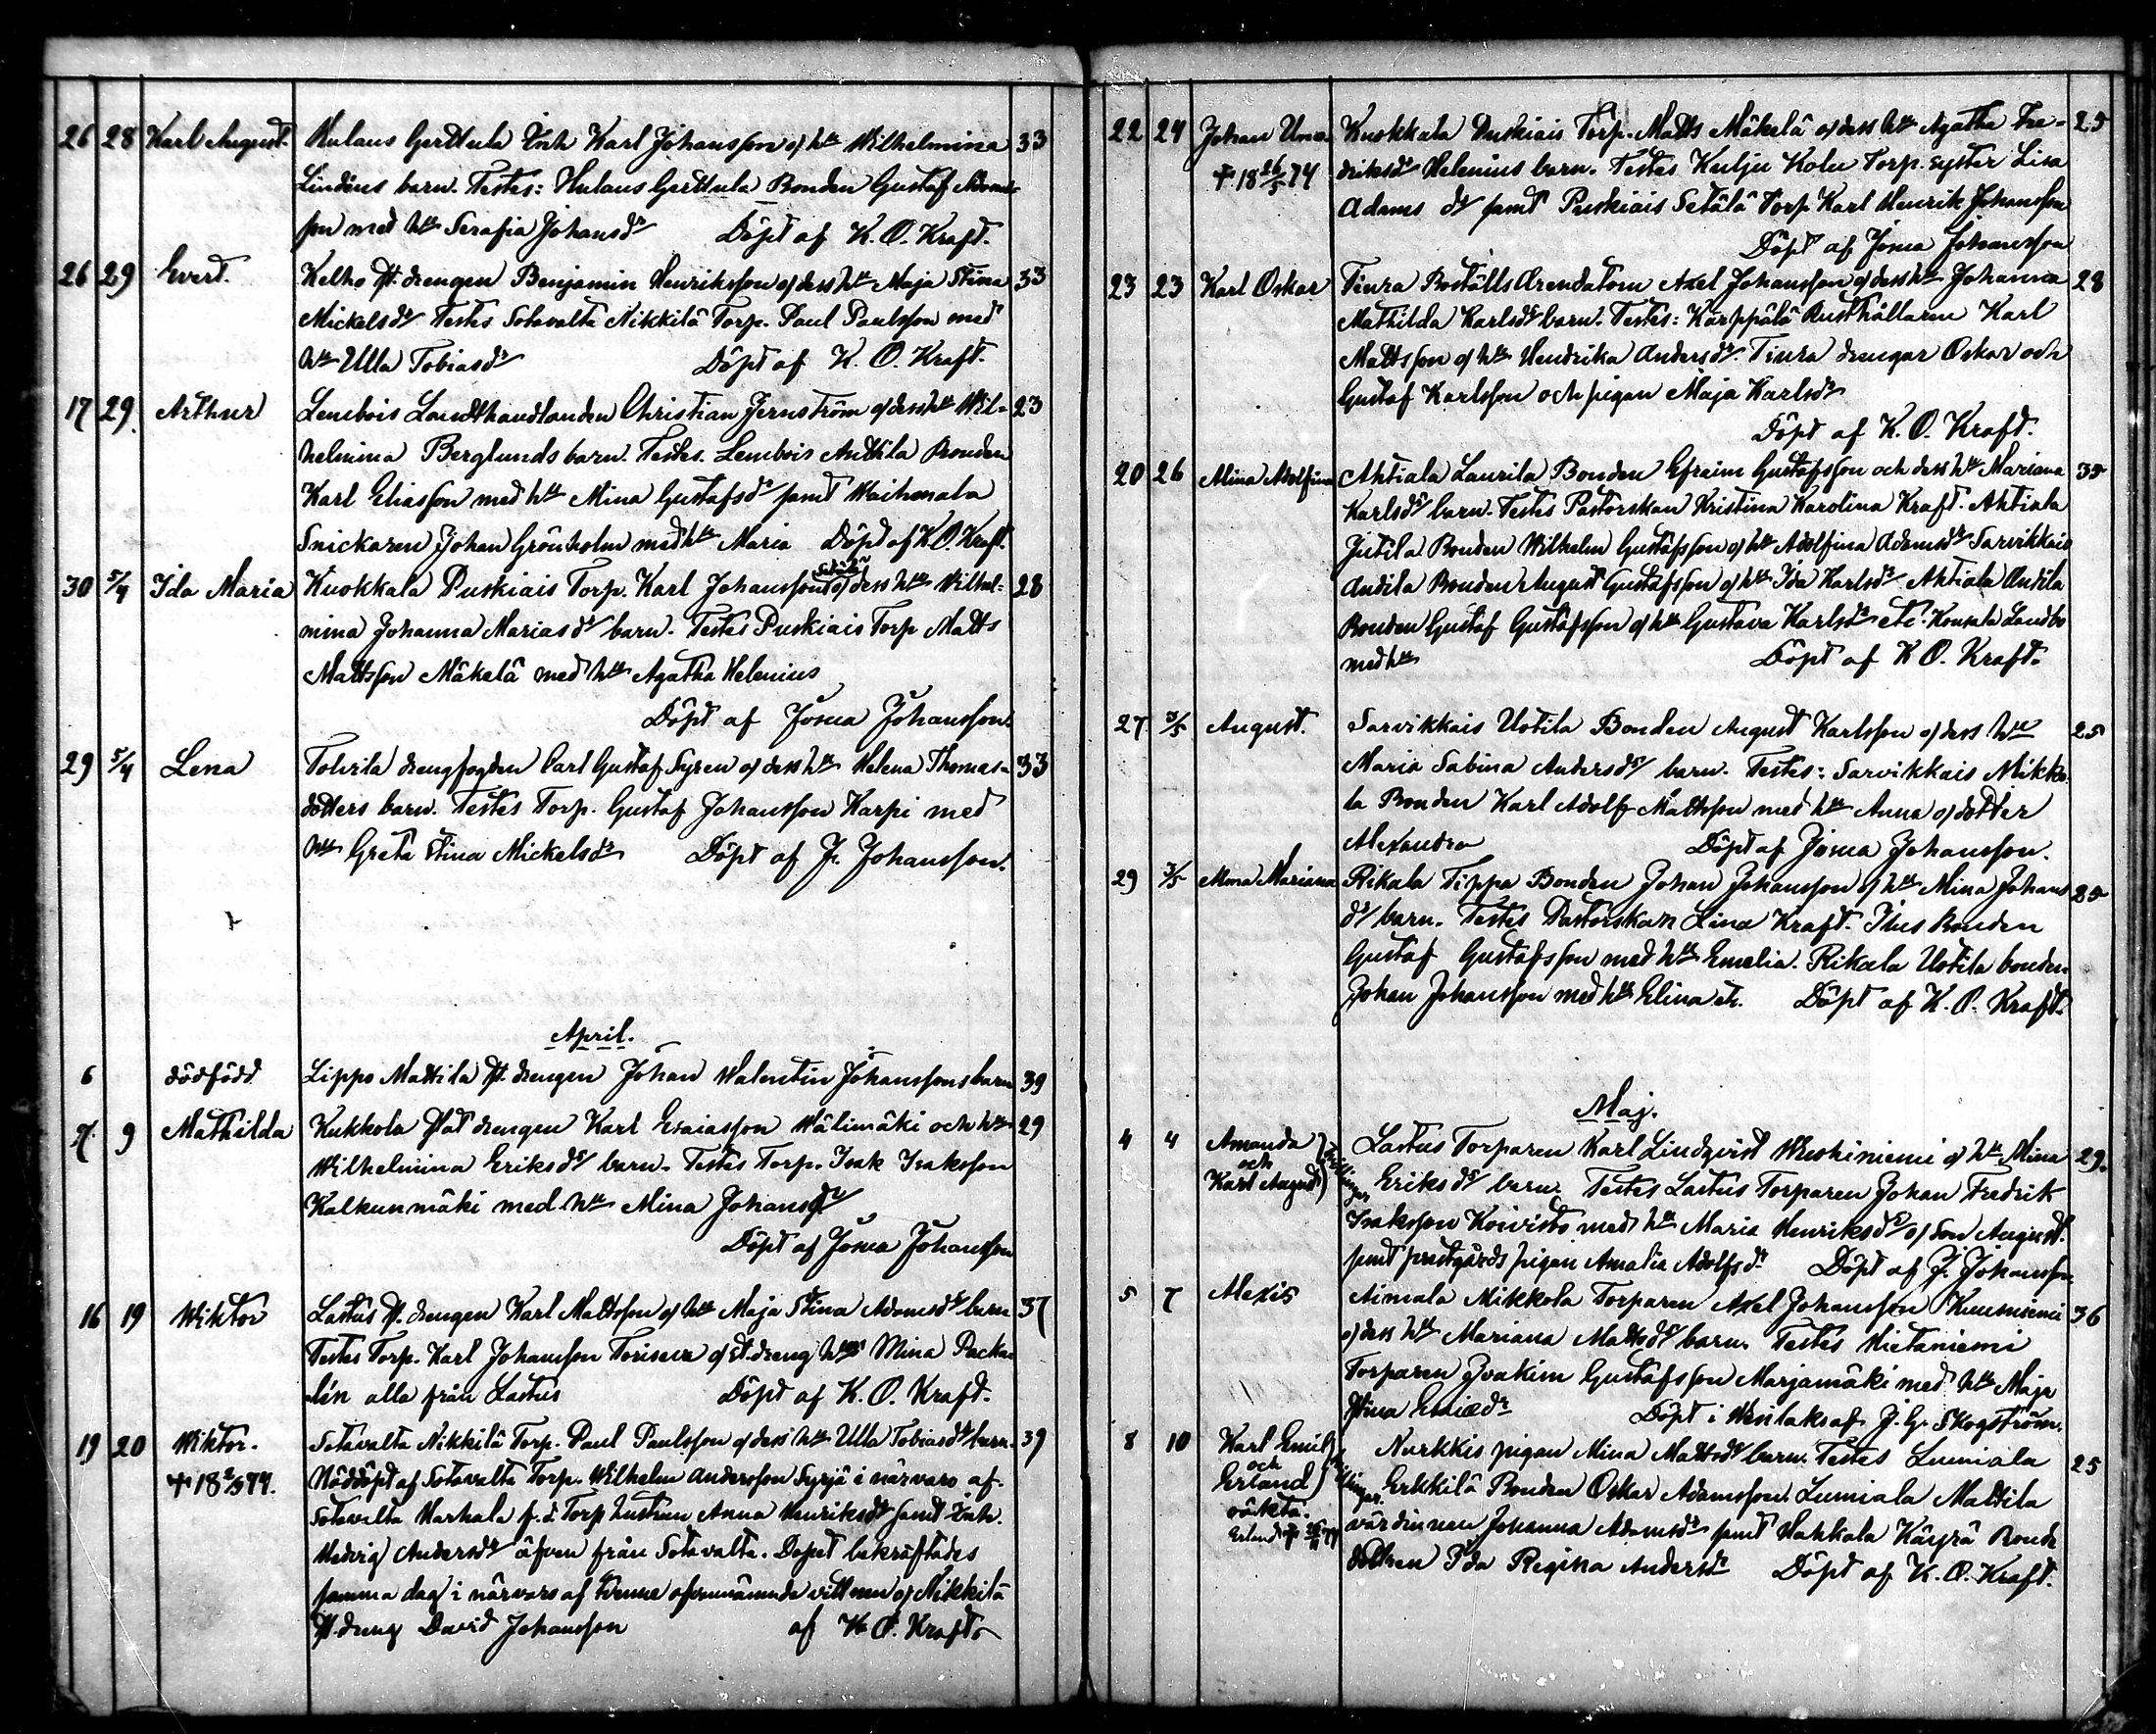 26 28 Karl August. Hulaus Gerttula Inh Karl Johansson o/ hu Wilhelmina 33
Lindéns barn. Testes: Hulaus Gerttula Bonden Gustaf Adams-
son med hu Serafia Johansdr Döpt af K. O. Kraft.
26 29 Evert. Kelho St. drengen Benjamin Henriksson o/ dess hu Maja Stina 33
Mickelsdr Testes Sotavalta Nikkilä Torp. Paul Paulsson med
hu Ulla Tobiasdr Döpt af K. O. Kraft.
17 29 Arthur Lembois Landthandlanden Christian Jernström o/ dess hu Wil- 23
helmina Berglunds barn. Testes. Lembois Anttila Bonden
Karl Eliasson med hu Mina Gustafsdr samt Waihmala
Snickaren Johan Grönholm med hu Maria Döpt af K. O. Kraft.
30 5/4 Ida Maria Kuokkala Puskiais Torp. Karl Johansson Setälä o/ dess hu Wilhel- 28
mina Johanna Mariasdr barn. Testes Puskiais Torp Matts
Mattsson Mäkelä med hu Agatha Helenius
Döpt af Josua Johansson.
29 5/4 Lena Tolvila drengfogden Carl Gustaf Syren o/ dess hu Helena Thomas- 33
dotters barn. Testes Torp. Gustaf Johansson Karpi med
hu Greta Stina Mickelsdr Döpt af J. Johansson.
April.
6 dödfödd Lippo Mattila St. drengen Johan Walentin Johanssons barn 39
7. 9 Mathilda Kukkola Stat drengen Karl Esaiasson Wälimäki och hu 29
Wilhelmina Eriksdr barn. Testes Torp. Isak Isaksson
Kalkunmäki med hu Mina Johansdr
Döpt af Josua Johansson
16 19 Wiktor Lastus St. drengen Karl Mattsson o/ hu Maja Stina Adamsdr barn 37
Testes Torp. Karl Johansson Toriseva o/ St. dreng hun Mina Packa-
lén alla från Lastus Döpt af K. O. Kraft.
19 20 Wiktor. Sotavalta Nikkilä Torp. Paul Paulsson o/ dess hu Ulla Tobiasdr barn. 39
† 18 2/5 74. Nöddöpt af Sotavalta Torp. Wilhelm Andersson Syrjä i närvaro af
Sotavalta Marhala f.d. Torp hustrun Anna Henriksdr samt Inh.
Hedvig Andersdr äfven från Sotavalta. Dopet bekräftades
samma dag i närvaro af tvenne ofvannämnde vittnen o/ Nikkilä
St. dreng David Johansson af K. O. Kraft
22 24 Johan Uno Kuokkala Puskiais Torp. Matts Mäkelä o/ dess hu Agatha Fre- 25
† 18 26/5 74 driksdr Helenius barn. Testes Kulju Kolu Torp. syster Lisa
Adams dr samt Puskiais Setälä Torp Karl Henrik Johansson
Döpt af Josua Johansson
23 23 Karl Oskar Tiura Boställs Arendatorn Axel Johansson o/ dess hu Johanna 28
Mathilda Karlsdr barn. Testes: Kärppälä Rusthållaren Karl
Mattsson o/ hu Hendrika Andersdr. Tiura drengar Oskar och
Gustaf Karlsson och pigan Maja Karlsdr
Döpt af K. O. Kraft.
20 26 Alina Adolfina Ahtiala Laurila Bonden Efraim Gustafsson och dess hu Mariana 35
Karlsdr barn. Testes Pastorskan Kristina Karolina Kraft. Ahtiala
Jutila Bonden Wilhelm Gustafsson o/ hu Adolfina Adamsdr Sarvikkais
Antila Bonden August Gustafsson o/ hu Ida Karlsdr Ahtiala Antila
Bonden Gustaf Gustafsson o/ hu Gustava Karlsdr etc. Landbo
med hu Döpt af K. O. Kraft.
27 3/5 August. Sarvikkais Uotila Bonden August Karlsson o/ dess hu 25
Maria Sabina Andersdr barn. Testes: Sarvikkais Mikko-
la Bonden Karl Adolf Mattsson med hu Anna o/ dotter
Alexandra Döpt af Josua Johansson.
29 3/5 Alma Mariana Rikala Tippa Bonden Johan Johansson o/ hu Mina Johans 25
dr barn. Testes Pastorskan Lina Kraft. Bonden
Gustaf Gustafsson med hu Emelia. Rikala Uotila bonden
Johan Johansson med hu Elina etc. Döpt af K. O. Kraft.
Maj.
4 4 Amanda och Karl August tvillingar Lastus Torparen Karl Lindqvist o/ hu Mina 29.
Eriksdr barn. Testes Lastus Torparen Johan Fredrik
Isaksson Koivisto med hu Maria Henriksdr o/ son August.
samt prestgårds pigan Amalia Adolfsdr Döpt af J. Johansson
5 7 Alexis Aimala Mikkola Torparen Axel Johansson Kuusniemi 36
o/ dess hu Mariana Mattsdr barn. Testes Hietaniemi
Torparen Joakim Gustafsson Marjamäki med hu Maja
Stina Döpt i Wesilaks af J. G. Skogström.
8 10 Karl Emil och Erland tvillingar. Nurkkis pigan Mina Mattsdr barn. Testes Lumiala 25
oäkta. Erkkilä Bonden Oskar Adamsson. Lumiala Mattila
Erland † värdinnan Johanna Adamsdr samt Hahkala Bonde
dottren Ida Regina Andersdr Döpt af K. O. Kraft.